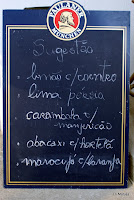 PAULANER
MÜNCHEN
Sugestão
. limão c/coentro
. lima pérsia
. carambola c/
manjericão
. abacaxi c/hortelã
. maracujá c/laranja